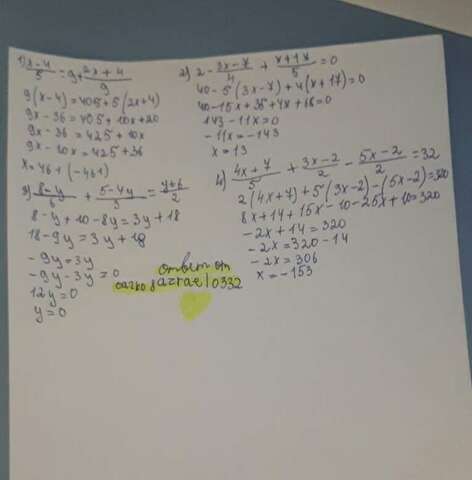 1) x-4/5 = 9 + 2x+4/9
9(x-4) = 405 + 5(2x+4)
9x-36 = 405 + 10x+20
9x-36 = 425 + 10x
9x-10x = 425+36
x = 461 (-461)
3) 8-y/6 + 5-4y/3 = y+6/2
8-y+10-8y = 3y+18
18-9y = 3y+18
-9y = 3y
-9y-3y = 0
12y = 0
y = 0
2) 2 - 3x-7/4 + x+17/5 = 0
40-5(3x-7) + 4(x+17) = 0
40-15x+35+4x+68=0
143-11x=0
-11x=-143
x = 13
4) 4x+7/5 + 3x-2/2 - 5x-2/2 = 32
2(4x+7) + 5(3x-2) - (5x-2) = 320
8x+14+15x-10-25x+10=320
-2x+14=320
-2x=320-14
-2x=306
x=-153
ответ от
azrael0332